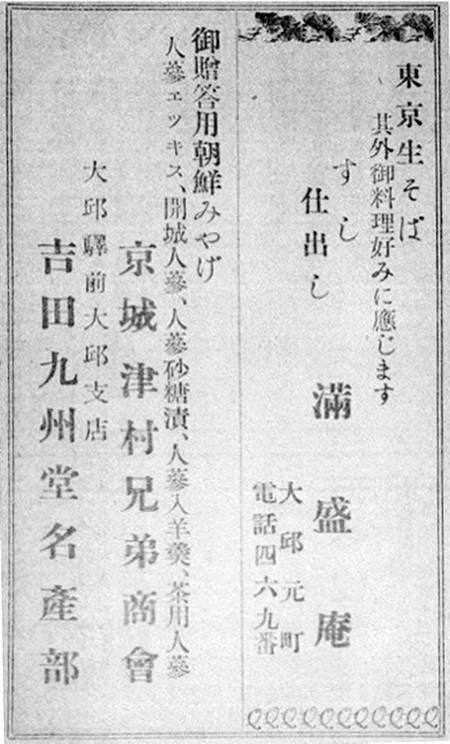 東京生そば
其外御料理好みに應じます
すし
仕出し
滿盛庵
大邱元町
電話四六九番
御贈答用朝鮮みやげ
人蔘ェッキス、開城人蔘、人蔘砂糖漬、人蔘入羊羹、茶用人蔘
京城津村兄弟商會
大邱驛前大邱支店
吉田九州堂名產部